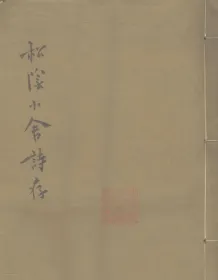 松陰小舍詩存